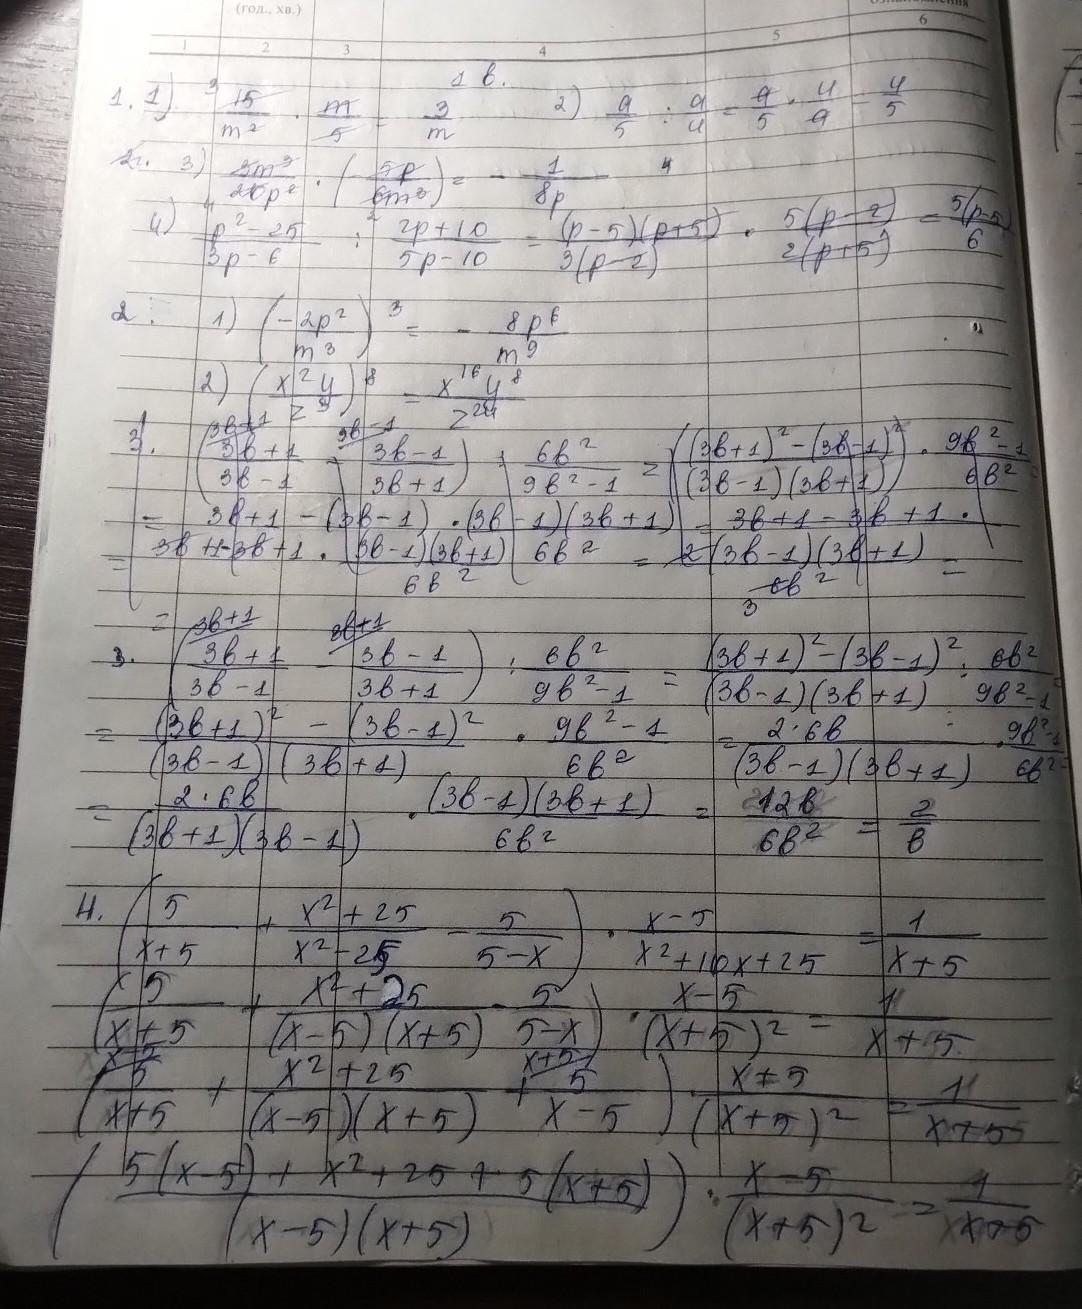 (год., хв.)
1 2 3 4 5 6
1 в.
1. 1) 15/m² · m/5 = 3/m 2) a/5 : a/4 = a/5 · 4/a = 4/5
3) 3m³/20p² · (- 5p/6m³) = - 1/8p
4) p² - 25/3p - 6 : 2p + 10/5p - 10 = (p - 5)(p + 5)/3(p - 2) · 5(p - 2)/2(p + 5) = 5(p - 5)/6
2. 1) (- 2p²/m³)³ = - 8p⁶/m⁹
2) (x²y/z³)⁸ = x¹⁶y⁸/z²⁴
3. (3b + 1/3b - 1 - 3b - 1/3b + 1) : 6b²/9b² - 1 = ((3b + 1)² - (3b - 1)²/(3b - 1)(3b + 1)) · 9b² - 1/6b² =
= 3b + 1 - (3b - 1) · (3b - 1)(3b + 1)/6b² = 3b + 1 - 3b + 1 ·
= 3b + 1 - 3b + 1 · (3b - 1)(3b + 1)/6b² = 2 (3b - 1)(3b + 1)/6b² =
=
3. (3b + 1/3b - 1 - 3b - 1/3b + 1) : 6b²/9b² - 1 = (3b + 1)² - (3b - 1)²/(3b - 1)(3b + 1) : 6b²/9b² - 1 =
= (3b + 1)² - (3b - 1)²/(3b - 1)(3b + 1) · 9b² - 1/6b² = 2 · 6b/(3b - 1)(3b + 1) · 9b² - 1/6b² =
= 2 · 6b/(3b + 1)(3b - 1) · (3b - 1)(3b + 1)/6b² = 12b/6b² = 2/b
4. (5/x + 5 + x² + 25/x² - 25 - 5/5 - x) · x - 5/x² + 10x + 25 = 1/x + 5
(5/x + 5 + x² + 25/(x - 5)(x + 5) - 5/5 - x) · x - 5/(x + 5)² = 1/x + 5
(5/x + 5 + x² + 25/(x - 5)(x + 5) + 5/x - 5) · x + 5/(x + 5)² = 1/x + 5
(5(x - 5) + x² + 25 + 5(x + 5)/(x - 5)(x + 5)) · x - 5/(x + 5)² = 1/x + 5